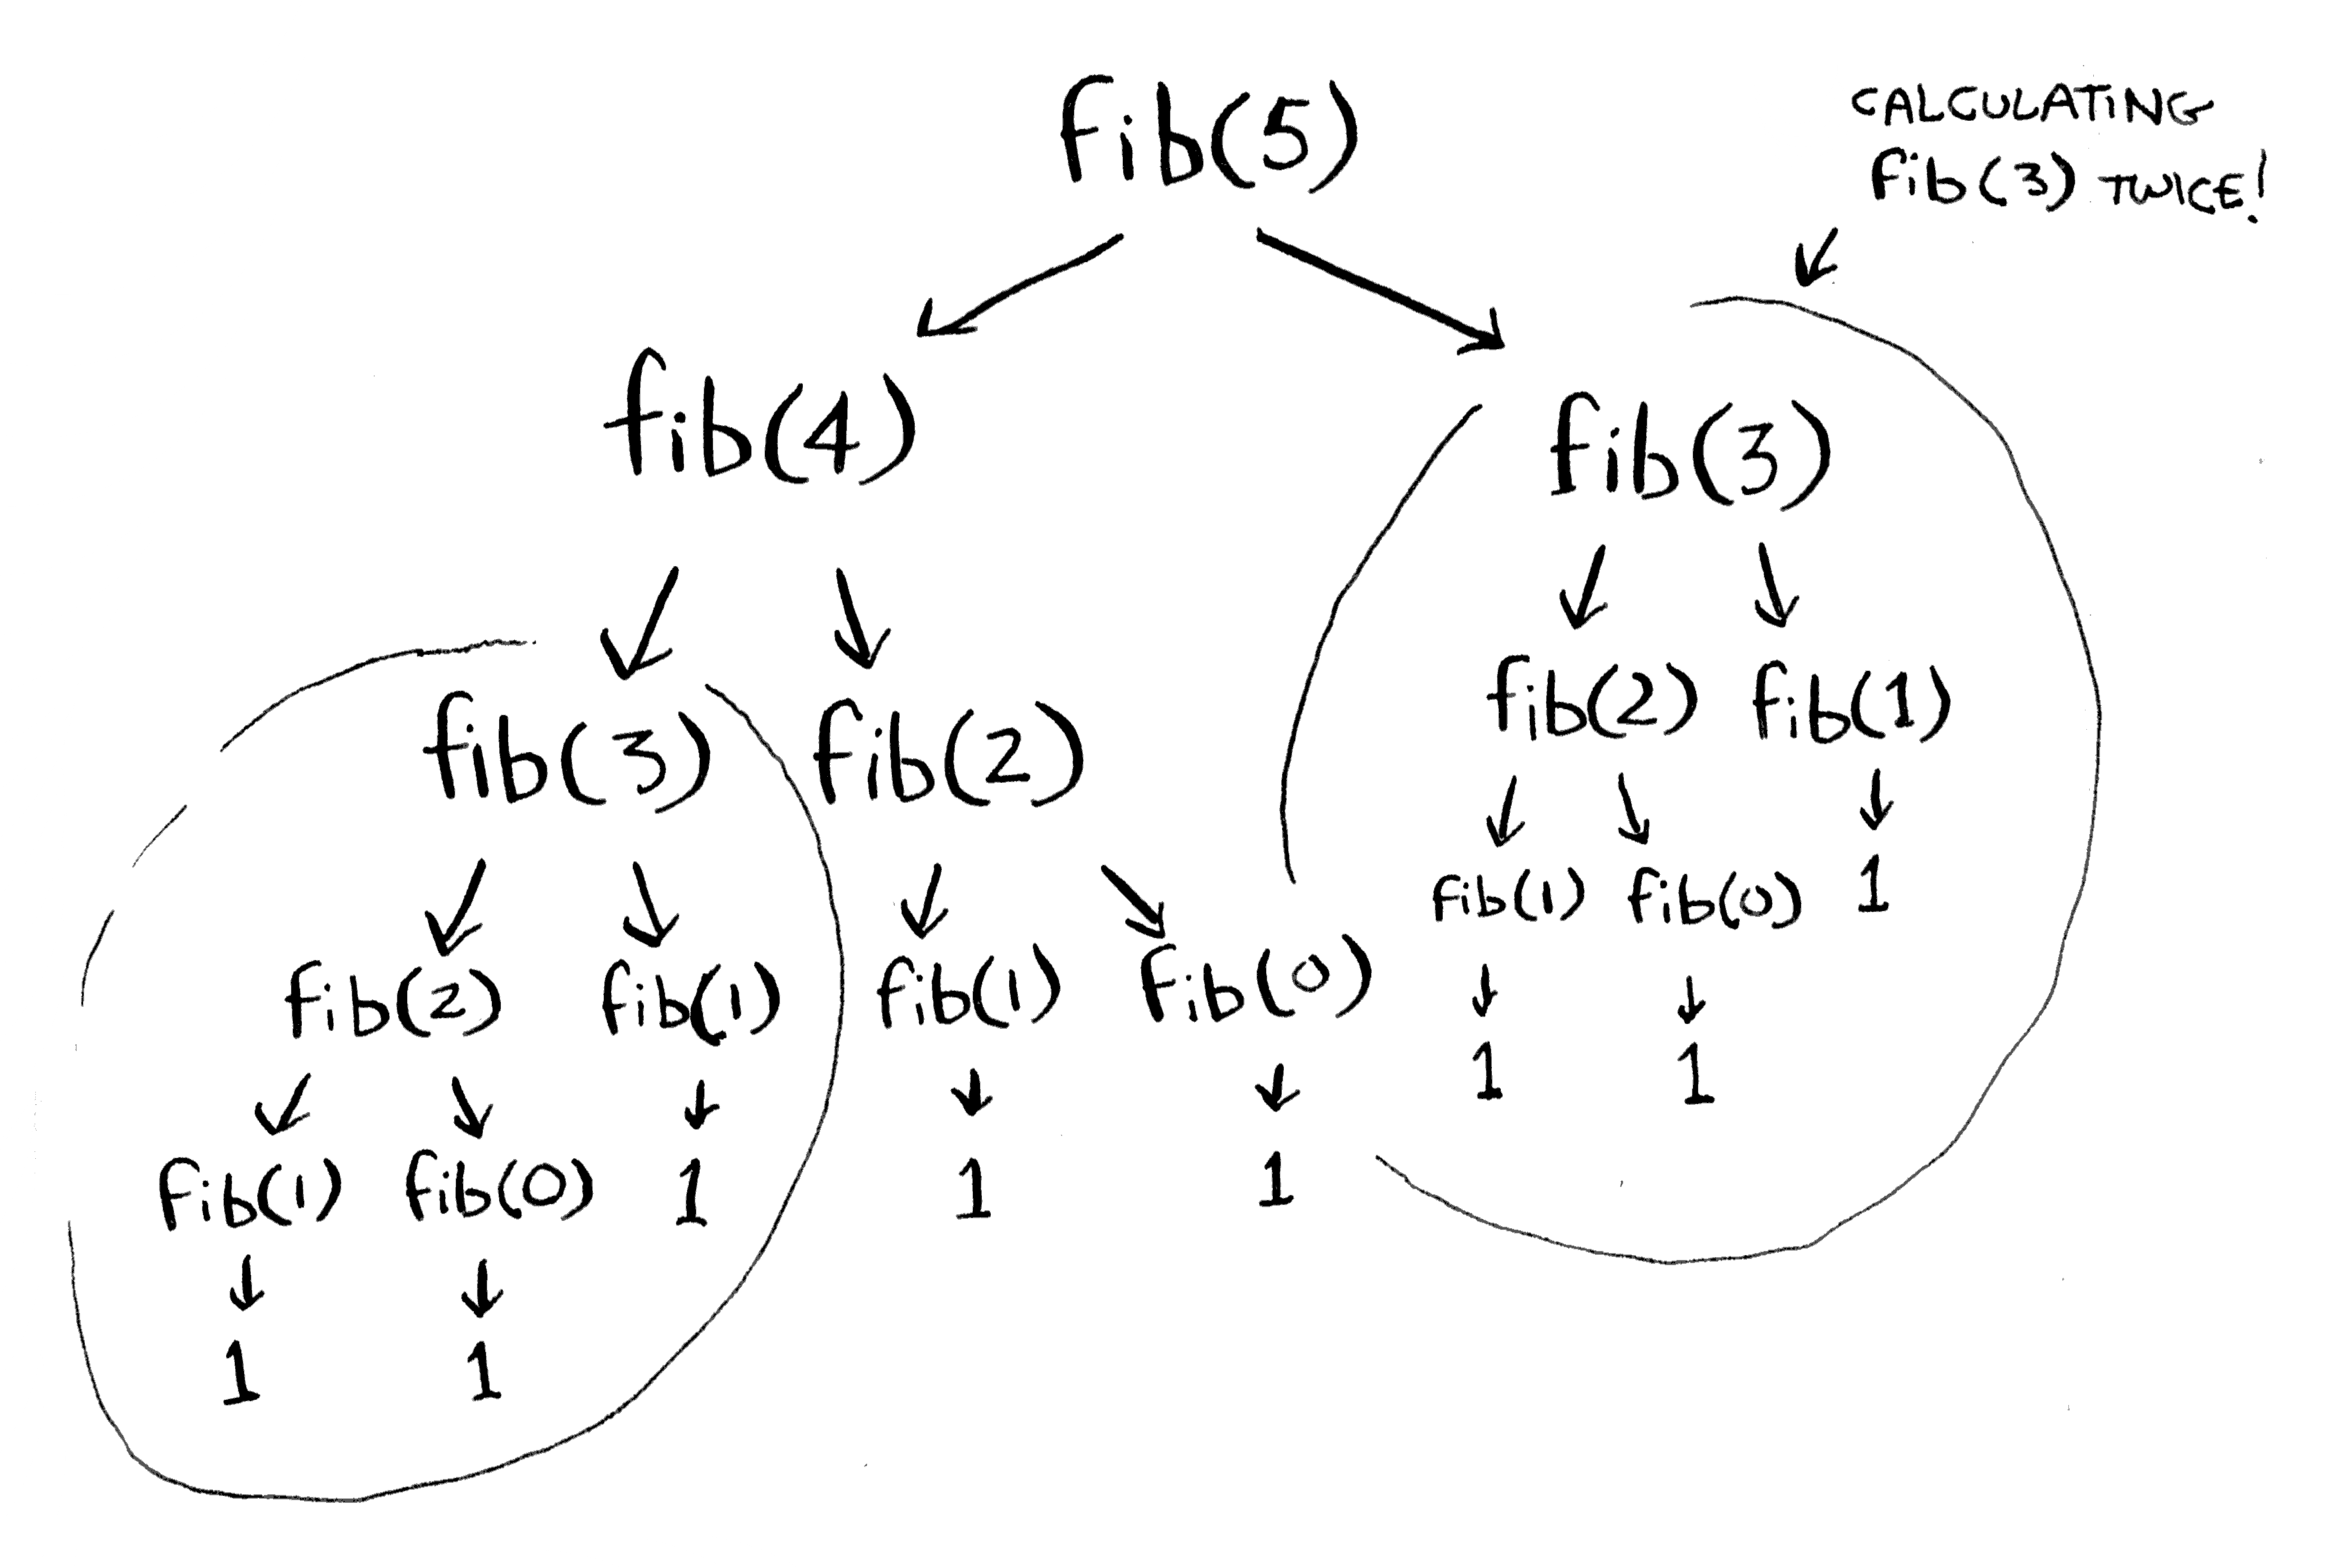 fib(5)
CALCULATING
fib(3) TWICE!
fib(4)
fib(3)
fib(3) fib(2)
fib(2) fib(1)
fib(1) fib(0) 1
fib(2) fib(1) fib(1) fib(0)
1 1
fib(1) fib(0) 1 1 1
1 1